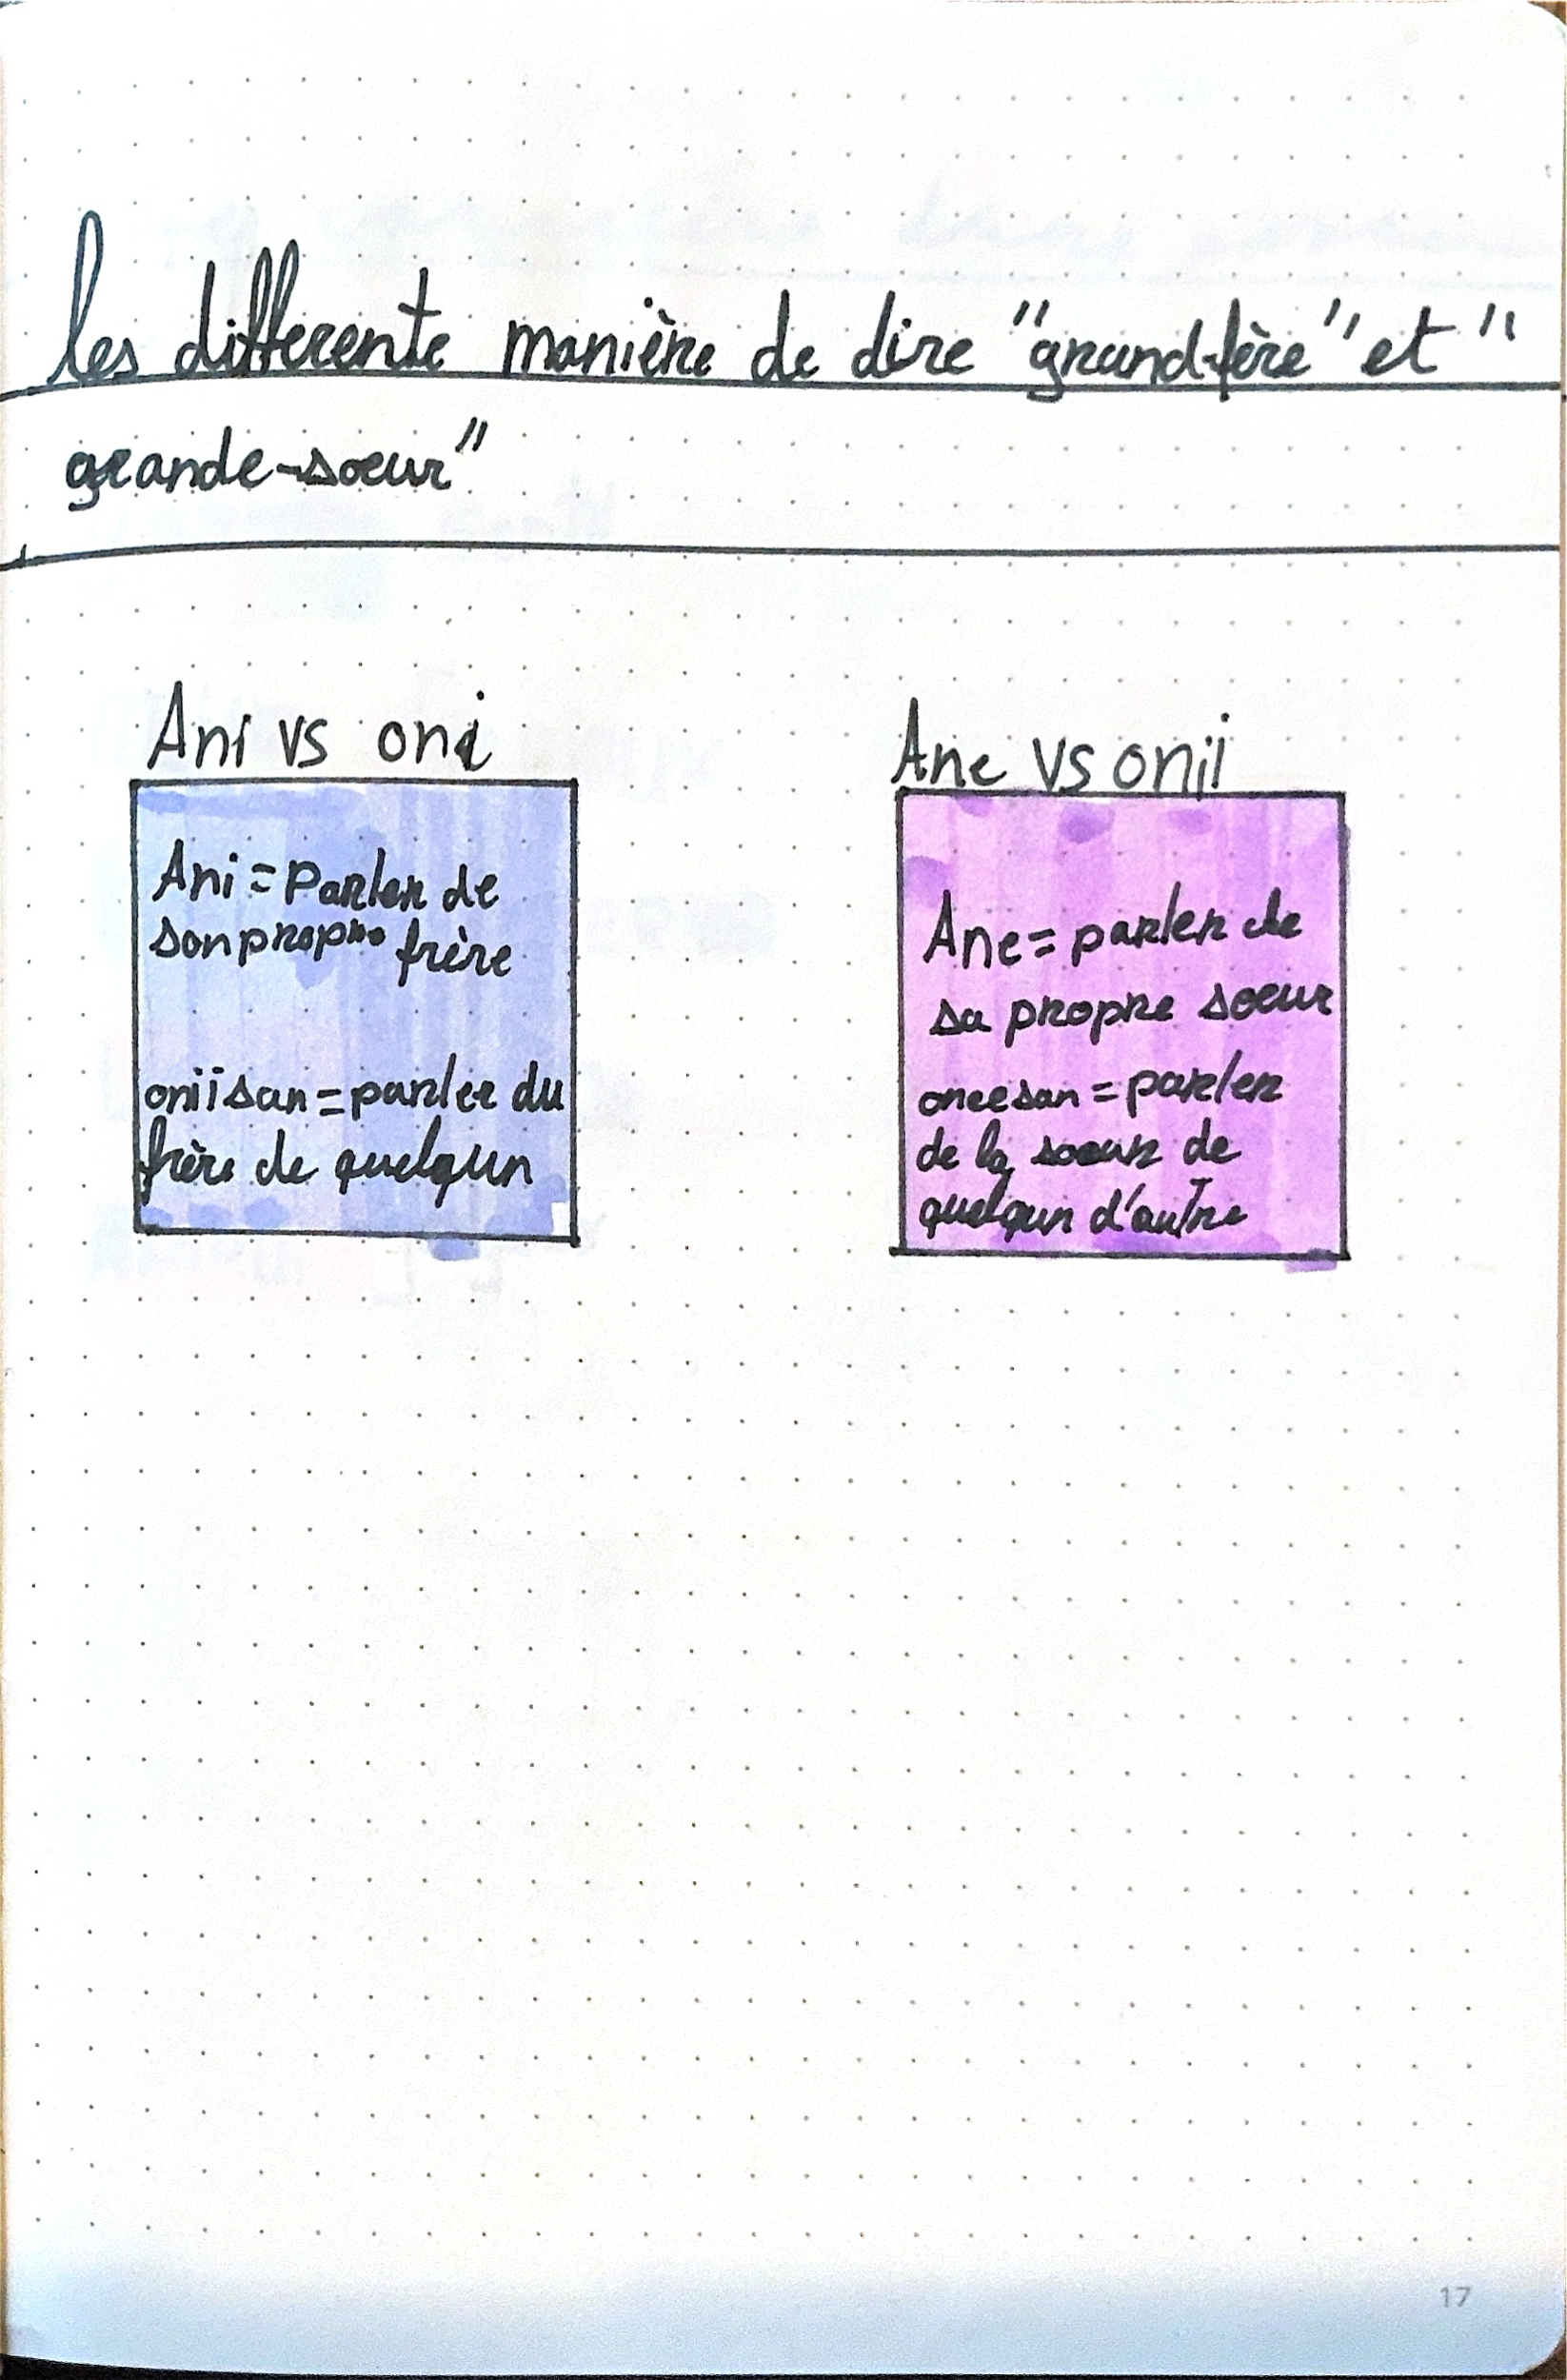 les differente manière de dire "grand-fère" et "
grande-soeur"
Ani vs oni
Ani = Parler de
son propre frère
oniisan = parler du
frère de quelqun
Ane vs onii
Ane = parler de
sa propre soeur
oneesan = parler
de la soeur de
quelqun d'autre
17